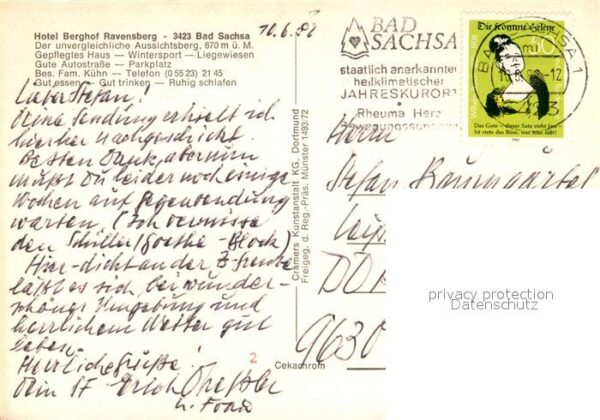 Hotel Berghof Ravensberg - 3423 Bad Sachsa
Der unvergleichliche Aussichtsberg, 670 m ü. M.
Gepflegtes Haus — Wintersport — Liegewiesen
Gute Autostraße — Parkplatz
Bes. Fam. Kühn — Telefon (0 55 23) 21 45
Gut essen — Gut trinken — Ruhig schlafen
10.6.82
Lieber Stefan!
Deine Sendung erhielt ich
hierher nachgeschickt
Besten Dank, warum
mußt Du leider noch einige
Wochen auf Gegensendung
warten. (Ich vermisse
den Schiller/Goethe-Block)
Hier dicht an der Z-Grenze
läßt es sich bei wunder-
schöner Umgebung und
herrlichem Wetter gut
leben.
Herzliche Grüße!
Dein SF Erich
u. Frau
2
Cekachrom
Cramers Kunstanstalt KG, Dortmund
Freigeg. d. Reg.-Präs. Münster 1493/72
BAD
SACHSA
staatlich anerkannter
heilklimatischer
JAHRESKURORT
Rheuma Herz
Die fromme Helene
40
BAD SACHSA 1
Das Gute – dieser Satz steht fest –
Ist stets das Böse, was man läßt!
Herrn
Stefan Baumgärtel
DDR
9630
privacy protection
Datenschutz